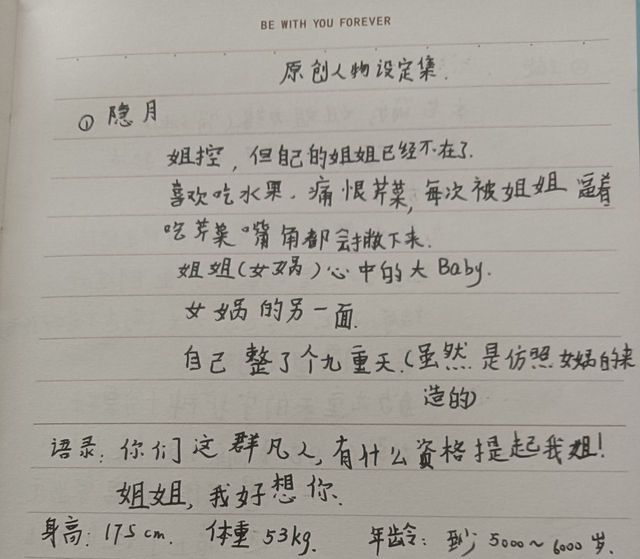 BE WITH YOU FOREVER
原创人物设定集.
① 隐月
姐控，但自己的姐姐已经不在了.
喜欢吃水果. 痛恨芹菜, 每次被姐姐 逼着
吃芹菜 嘴角都会撇下来.
姐姐(女娲)心中的大Baby.
女娲的另一面.
自己 整了个九重天.(虽然 是仿照女娲的来
造的)
语录: 你们这群凡人, 有什么资格提起我姐!
姐姐, 我好想你.
身高: 175cm. 体重 53kg. 年龄: 5000~6000岁.